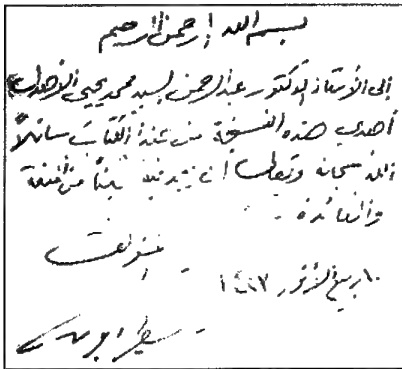 بسم الله الرحمن الرحيم
إلى الأستاذ الدكتور عبد الرحمن السيد محمد يحيى الأهدل
أهدي هذه النسخة من هذا الكتاب سائلاً
الله سبحانه وتعالى أن
والفائدة.
المؤلف
١٠ ربيع الأنور